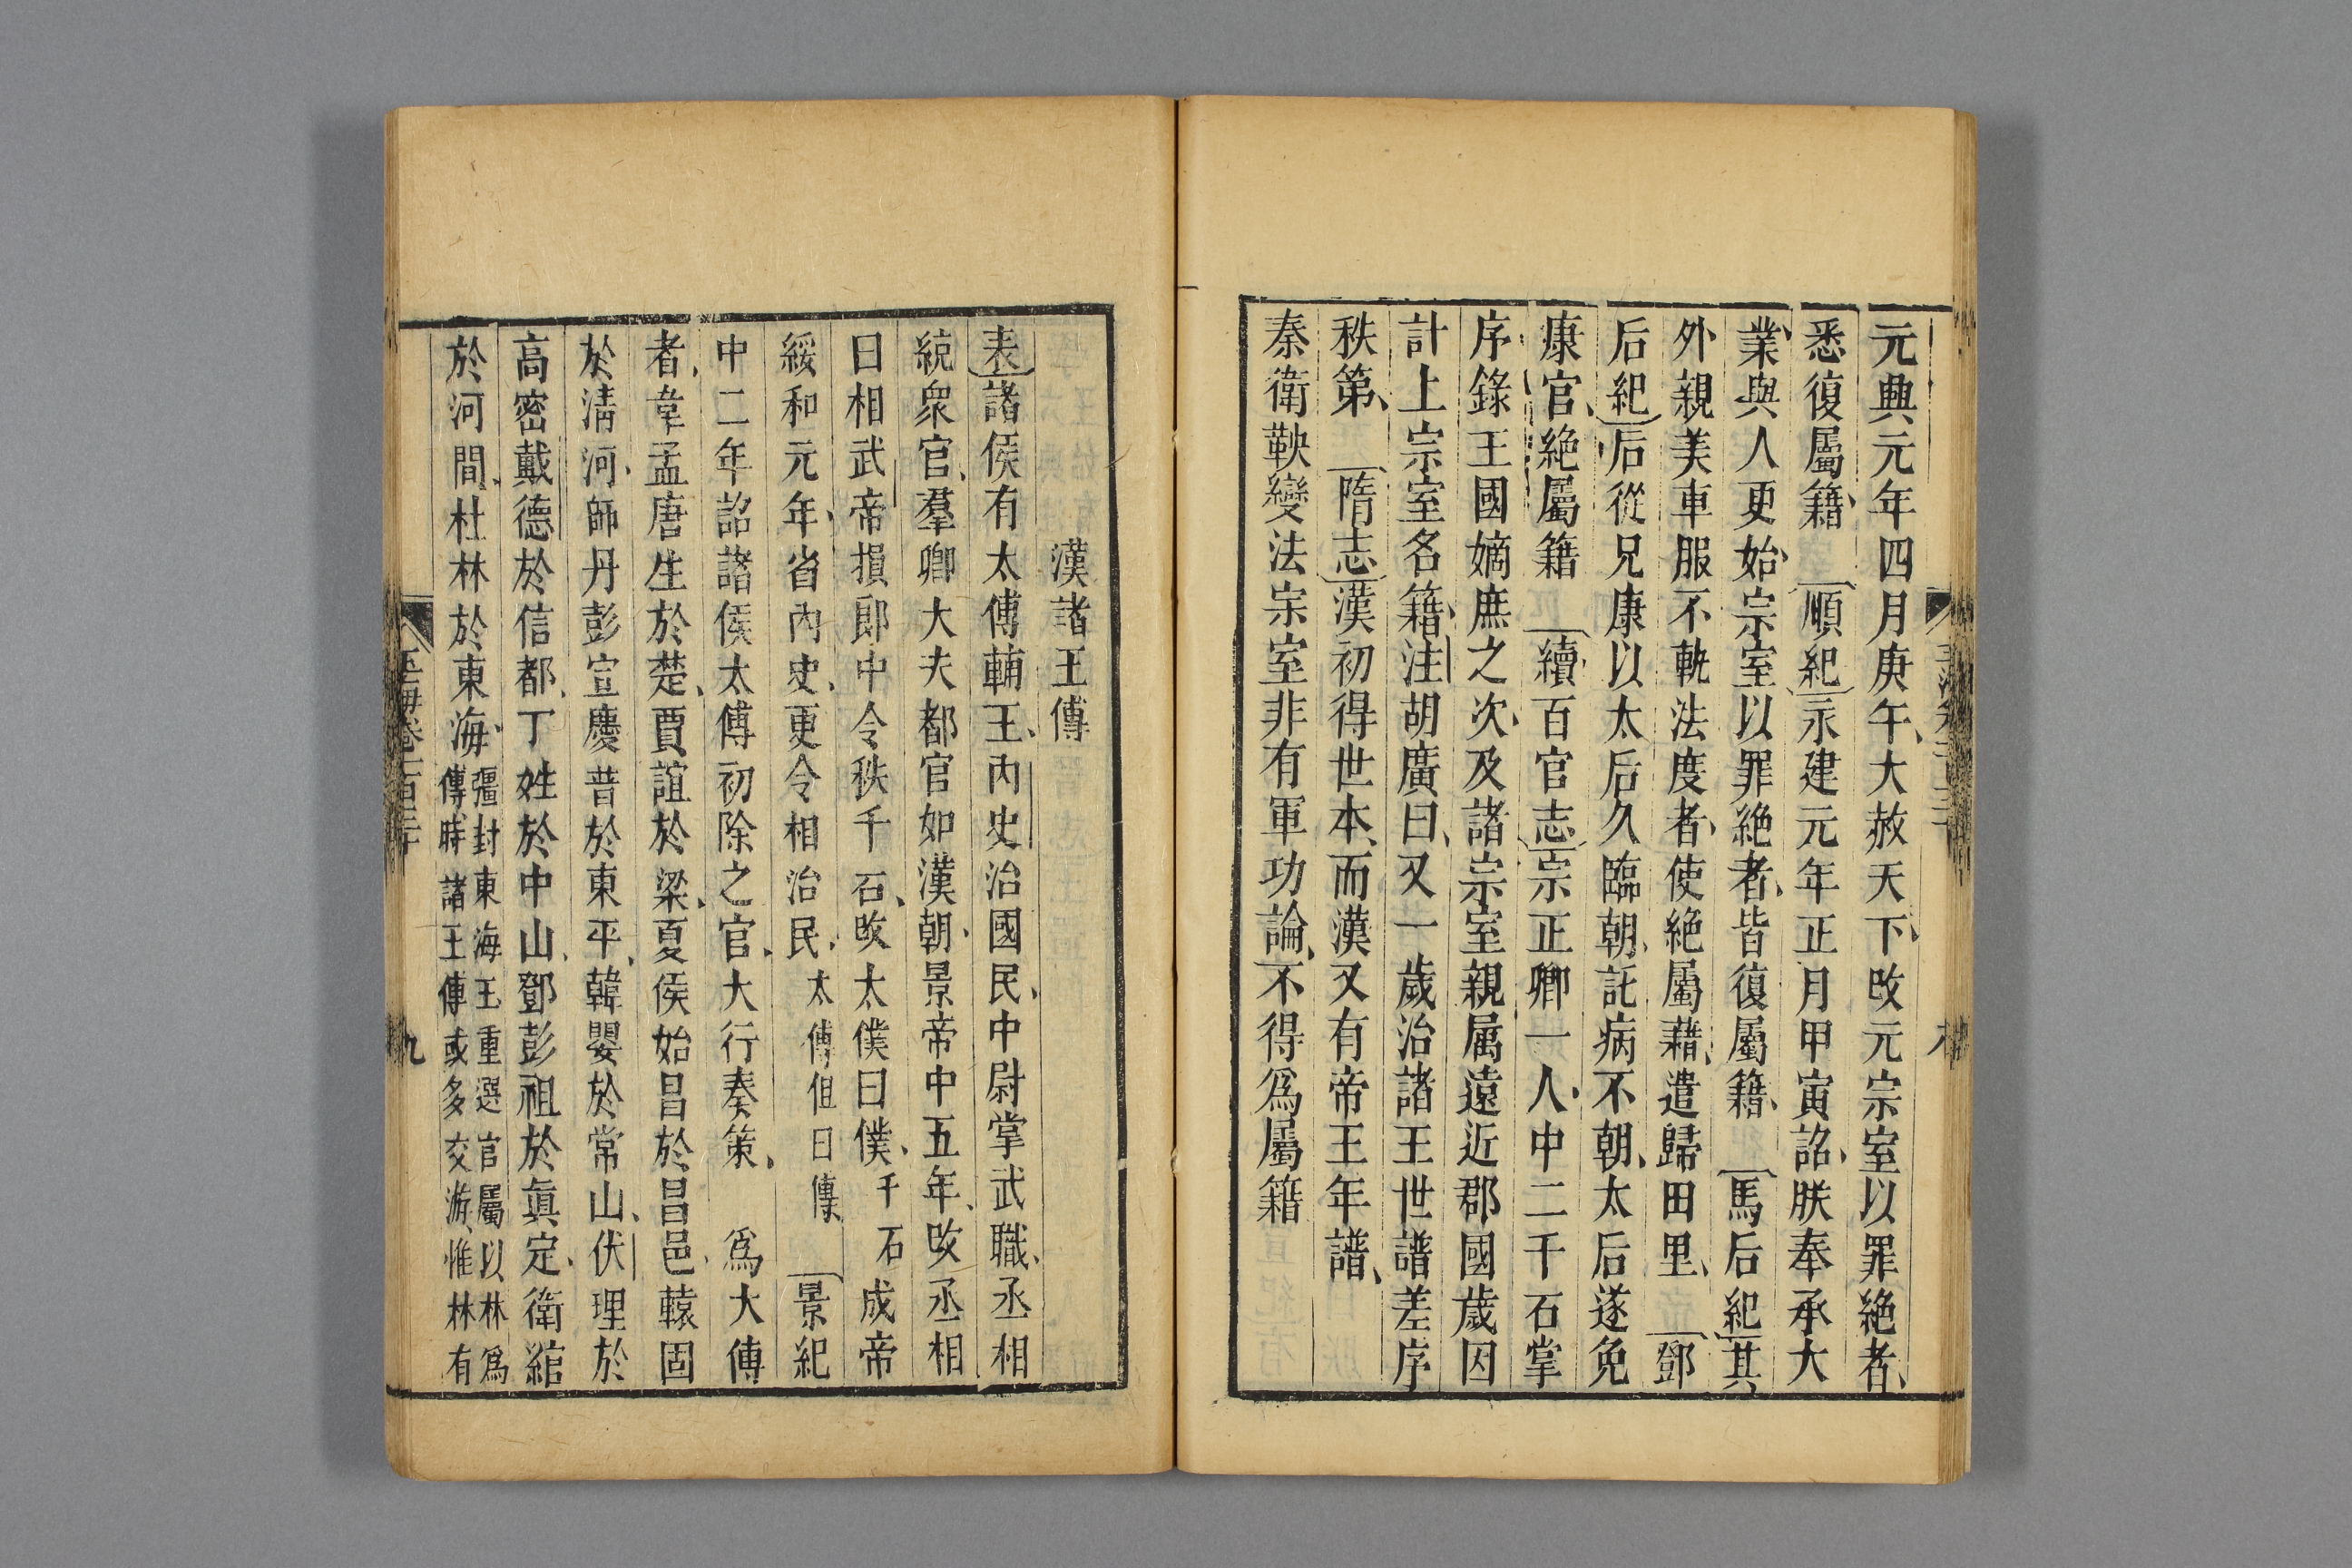 元興元年四月庚午大赦天下改元宗室以罪絶者
悉復屬籍 順紀永建元年正月甲寅詔朕奉承大
業與人更始宗室以罪絶者皆復屬籍 馬后紀其
外親美車服不軌法度者使絶屬藉遣歸田里 鄧
后紀后從兄康以太后久臨朝託病不朝太后遂免
康官絶屬籍 續百官志宗正卿一人中二千石掌
序錄王國嫡庶之次及諸宗室親属遠近郡國歲因
計上宗室名籍注胡廣曰又一歲治諸王世譜差序
秩第 隋志漢初得世本而漢又有帝王年譜
秦衛鞅變法宗室非有軍功論不得爲屬籍
漢諸王傅
表諸侯有太傅輔王内史治國民中尉掌武職丞相
統衆官羣卿大夫都官如漢朝景帝中五年改丞相
曰相武帝損郎中令秩千石改太僕曰僕千石成帝
綏和元年省内史更令相治民太傅但曰傅 景紀
中二年詔諸侯太傅初除之官大行奏策 爲大傅
者韋孟唐生於楚賈誼於梁夏侯始昌於昌邑轅固
於清河師丹彭宣慶普於東平韓嬰於常山伏理於
高密戴德於信都丁姓於中山鄧彭祖於眞定衛綰
於河間杜林於東海彊封東海王重選官屬以林爲
傅時諸王傅或多交游惟林有
玉海卷一百三十
九